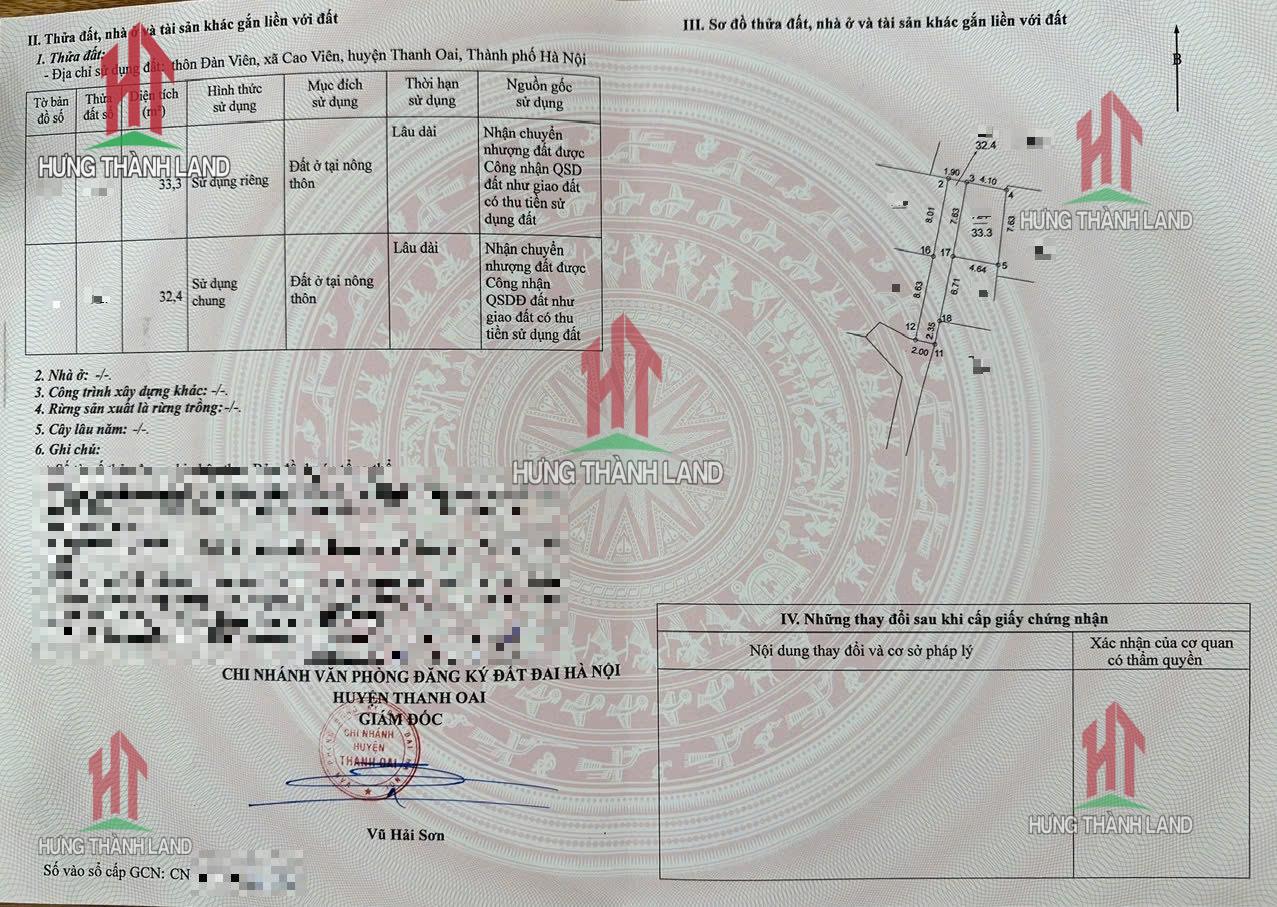 II. Thửa đất, nhà ở và tài sản khác gắn liền với đất
1. Thửa đất:
- Địa chỉ sử dụng đất: thôn Đàn Viên, xã Cao Viên, huyện Thanh Oai, Thành phố Hà Nội
Tờ bản đồ số
Thửa đất số
Diện tích (m²)
Hình thức sử dụng
Mục đích sử dụng
Thời hạn sử dụng
Nguồn gốc sử dụng
33,3
Sử dụng riêng
Đất ở tại nông thôn
Lâu dài
Nhận chuyển
nhượng đất được
Công nhận QSD
đất như giao đất
có thu tiền sử
dụng đất
32,4
Sử dụng chung
Đất ở tại nông thôn
Lâu dài
Nhận chuyển
nhượng đất được
Công nhận
QSDĐ đất như
giao đất có thu
tiền sử dụng đất
2. Nhà ở: -/-.
3. Công trình xây dựng khác: -/-.
4. Rừng sản xuất là rừng trồng:-/-.
5. Cây lâu năm: -/-.
6. Ghi chú:
CHI NHÁNH VĂN PHÒNG ĐĂNG KÝ ĐẤT ĐAI HÀ NỘI
HUYỆN THANH OAI
GIÁM ĐỐC
CHI NHÁNH
HUYỆN
THANH OAI
Vũ Hải Sơn
Số vào sổ cấp GCN: CN
III. Sơ đồ thửa đất, nhà ở và tài sản khác gắn liền với đất
B
32.4
1.90
2
3
4.10
4
8.01
7.63
7.63
33.3
16
17
4.64
5
8.63
6.71
18
12
2.35
2.00
11
IV. Những thay đổi sau khi cấp giấy chứng nhận
Nội dung thay đổi và cơ sở pháp lý
Xác nhận của cơ quan
có thẩm quyền
HƯNG THÀNH LAND
HƯNG THÀNH LAND
HƯNG THÀNH LAND
HƯNG THÀNH LAND
HƯNG THÀNH LAND